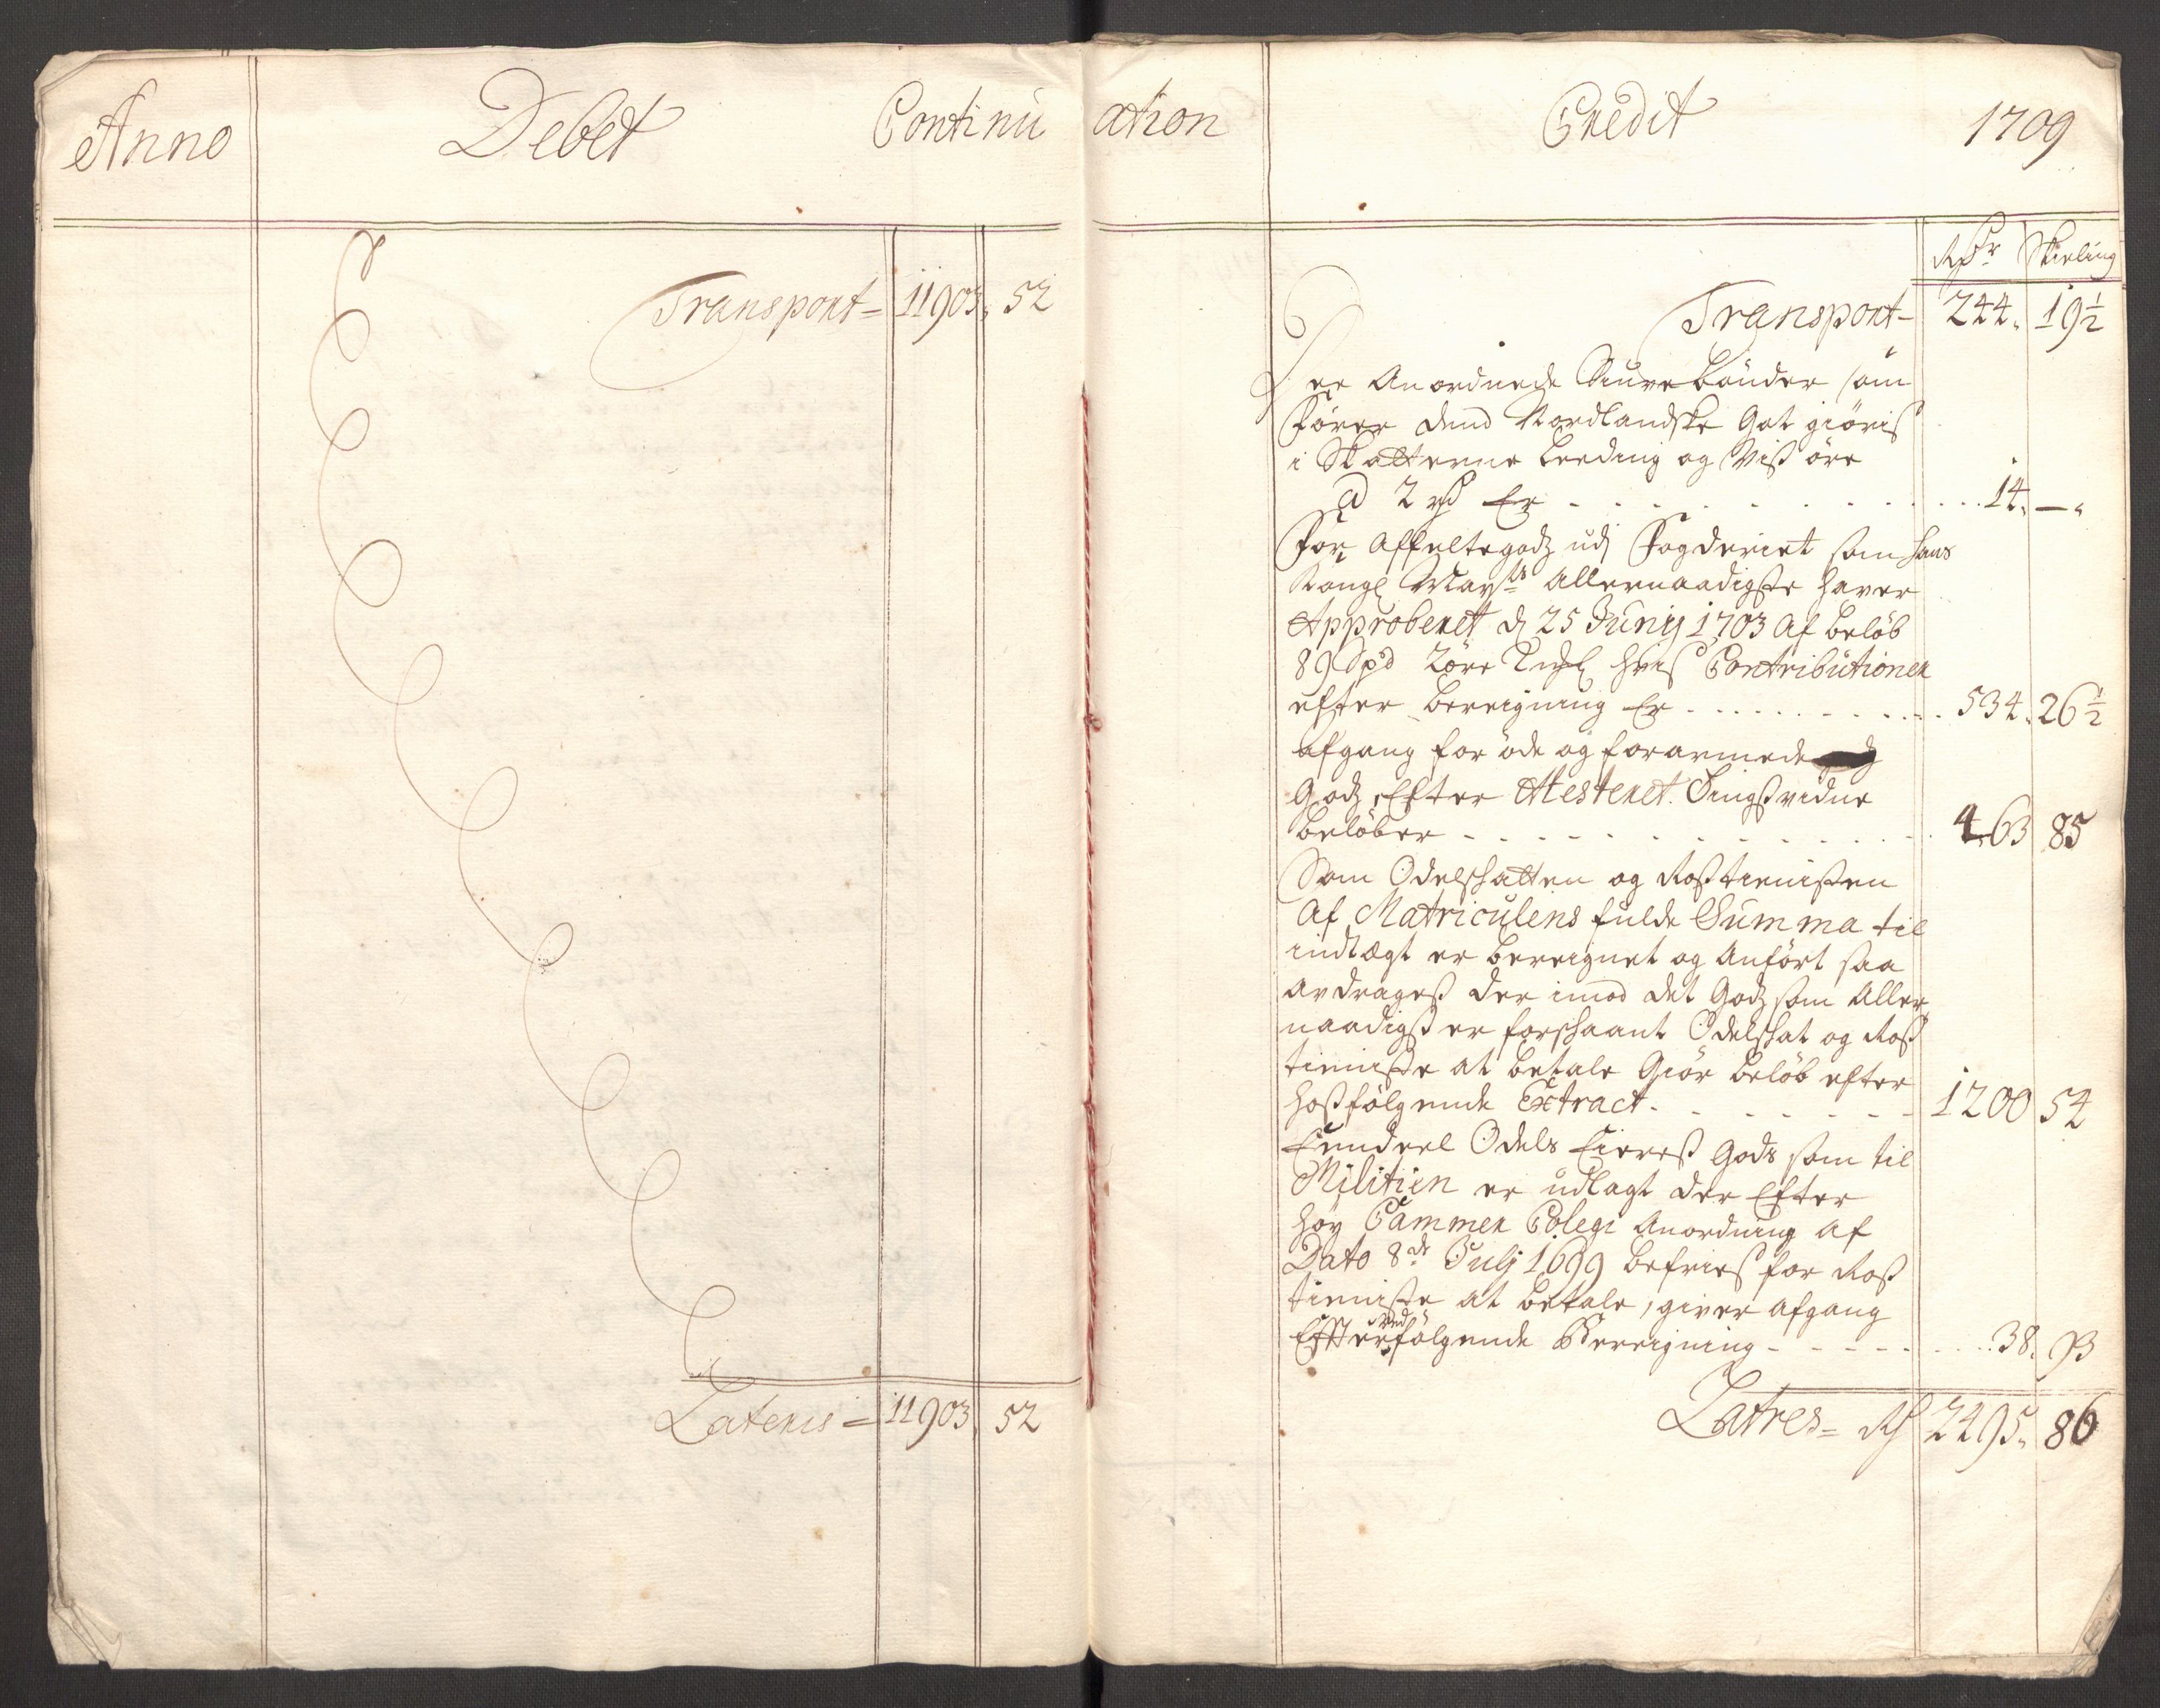 Anno Debet Continu
Transport= 11903. 52
Lateris= 11903. 52
ation Credit 1709
Rdr Skieling
Transport- 244. 19½
7 er Anordnede Skudsbönder som
fören dend Nordlandske Gat giöris
i Skatterne Leeding og Viss öre
a 2 rd Er 14. —.
For Affeltegodz udj Fogderiet som hans
Kongl Mayts Allernaadigste haver
Approberet d 25 Junij 1703 Af beløb
89 Spd 2 öre hvis Contributioner
efter bereigning Er 534. 26½
Afgang for öde og forarmede
Godz, Efter Attesteret. Tingsvidne
beløber 463 85
Som Odelschatten og Rosstienisten
Af Matriculens fulde Summa til
indtægt er bereignet og Anfört saa
Avdragess der imod det Godz som Aller
naadigst er forschaant Odelschat og Ross
tieniste at betale Giör beløb efter
hossfölgende Extract 1200 54
Een deel Odels Eierss Gods som til
Militien er udlagt der Efter
höy Cammer Colegi Anordning Af
Dato 8de Julj 1699 befries for Ross
tieniste at betale, giver Afgang
Effter ved fölgende Bereigning 38. 93
Latres= Rd 2495. 86